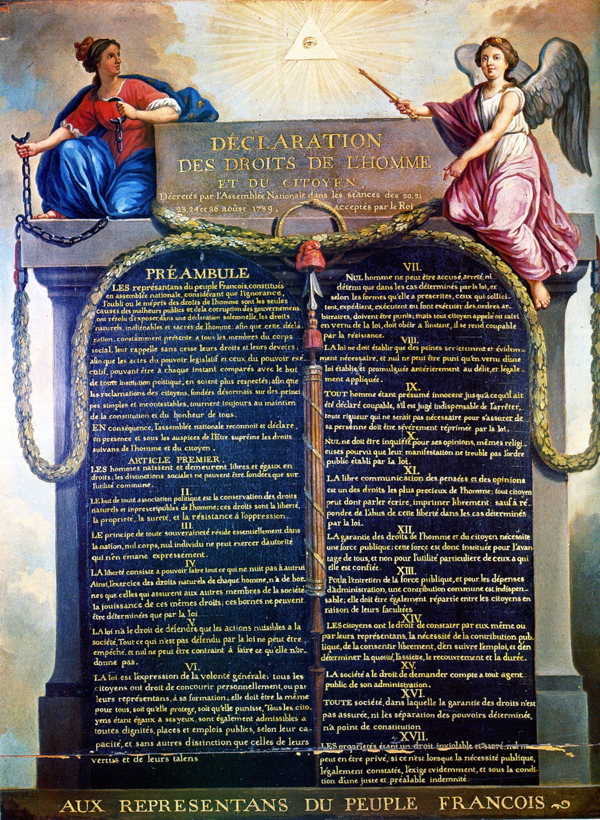 DÉCLARATION
DES DROITS DE L'HOMME
ET DU CITOYEN
Décretés par l'Assemblée Nationale dans les séances des 20. 21
23. 24 et 26 août 1789, acceptés par le Roi
PRÉAMBULE
LES représentans du peuple François, constitués
en assemblée nationale, considérant que l'ignorance,
l'oubli ou le mépris des droits de l'homme sont les seules
causes des malheurs publics et de la corruption des gouvernemens
ont résolu d'exposer dans une déclaration solemnelle, les droits
naturels, inaliénables et sacrés de l'homme: afin que cette décla
ration, constamment présente à tous les membres du corps
social, leur rappelle sans cesse leurs droits et leurs devoirs;
afin que les actes du pouvoir législatif et ceux du pouvoir exé
cutif, pouvant être à chaque instant comparés avec le but
de toute institution politique, en soient plus respectés; afin que
les reclamations des citoyens, fondées désormais sur des princi
pes simples et incontestables, tournent toujours au maintien
de la constitution et du bonheur de tous.
EN conséquence, l'assemblée nationale reconnoit et déclare,
en présence et sous les auspices de l'Etre suprême les droits
suivans de l'homme et du citoyen.
ARTICLE PREMIER.
LES hommes naissent et demeurent libres et égaux en
droits; les distinctions sociales ne peuvent être fondées que sur
l'utilité commune.
II.
LE but de toute association politique est la conservation des droits
naturels et inprescriptibles de l'homme; ces droits sont la liberté,
la propriété, la sureté, et la résistance à l'oppression.
III.
LE principe de toute souveraineté réside essentiellement dans
la nation, nul corps, nul individu ne peut exercer d'autorité
qui n'en émane expressément.
IV.
LA liberté consiste à pouvoir faire tout ce qui ne nuit pas à autrui
Ainsi, l'exercice des droits naturels de chaque homme, n'a de bor-
nes que celles qui assurent aux autres membres de la société
la jouissance de ces mêmes droits; ces bornes ne peuvent
être déterminées que par la loi.
V.
LA loi n'a le droit de défendre que les actions nuisibles à la
société. Tout ce qui n'est pas défendu par la loi ne peut être
empêché, et nul ne peut être contraint à faire ce qu'elle n'or-
donne pas.
VI.
LA loi est l'expression de la volonté générale; tous les
citoyens ont droit de concourir personnellement, ou par
leurs représentans, à sa formation; elle doit être la même
pour tous, soit qu'elle protege, soit qu'elle punisse. Tous les cito-
yens étant égaux à ses yeux, sont également admissibles à
toutes dignités, places et emplois publics, selon leur ca-
pacité, et sans autres distinction que celles de leurs
vertus et de leurs talens
VII.
NUL homme ne peut être accusé, arreté, ni
détenu que dans les cas déterminés par la loi, et
selon les formes qu'elle a prescrites, ceux qui sollici-
tent, expédient, exécutent ou font exécuter des ordres ar-
bitraires, doivent être punis; mais tout citoyen appelé ou saisi
en vertu de la loi, doit obéir à l'instant, il se rend coupable
par la résistance.
VIII.
LA loi ne doit établir que des peines strictement et évidem-
ment nécessaire, et nul ne peut être puni qu'en vertu d'une
loi établie et promulguée antérieurement au délit, et légale-
ment appliquée.
IX.
TOUT homme étant présumé innocent jusqu'à ce qu'il ait
été déclaré coupable, s'il est jugé indispensable de l'arrêter,
toute rigueur qui ne serait pas nécessaire pour s'assurer de
sa personne doit être sévèrement réprimée par la loi.
X.
NUL ne doit être inquiété pour ses opinions, mêmes religi-
euses pourvu que leur manifestation ne trouble pas l'ordre
public établi par la loi.
XI.
LA libre communication des pensées et des opinions
est un des droits les plus precieux de l'homme; tout citoyen
peut donc parler écrire, imprimer librement: sauf à ré-
pondre de l'abus de cette liberté dans les cas déterminés
par la loi.
XII.
LA garantie des droits de l'homme et du citoyen nécessite
une force publique; cette force est donc instituée pour l'avan-
tage de tous, et non pour l'utilité particuliere de ceux a qui
elle est confiée.
XIII.
Pour l'entretien de la force publique, et pour les dépenses
d'administration, une contribution commune est indispen-
sable; elle doit être également répartie entre les citoyens en
raison de leurs facultées
XIV.
LES citoyens ont le droit de constater par eux même ou
par leurs représentans, la nécessité de la contribution pub-
lique, de la consentir librement, d'en suivre l'emploi, et d'en
déterminer la quotité, l'assiette, le recouvrement et la durée.
XV.
LA société a le droit de demander compte a tout agent
public de son administration.
XVI.
TOUTE société, dans laquelle la garantie des droits n'est
pas assurée, ni les séparation des pouvoirs déterminée,
n'a point de constitution
XVII.
LES proprietés étant un droit inviolable et sacré, nul ne
peut en être privé, si ce n'est lorsque la nécessité publique,
légalement constatée, l'exige évidemment, et sous la condi-
tion d'une juste et préalable indemnité.
AUX REPRESENTANS DU PEUPLE FRANCOIS